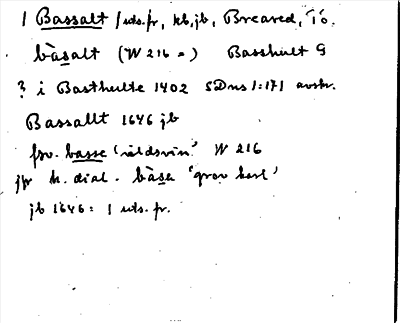 1 Bassalt 1 uts. fr, kb, jb, Breared, Tö.
bàsalt (W 216 =) Basshult G
? i Basthulte 1402 SDns 1:171 avskr.
Bassallt 1646 jb
fsv. basse 'vildsvin' W 216
jfr h. dial. bàse 'grov karl'
jb 1646: 1 uts. fr.